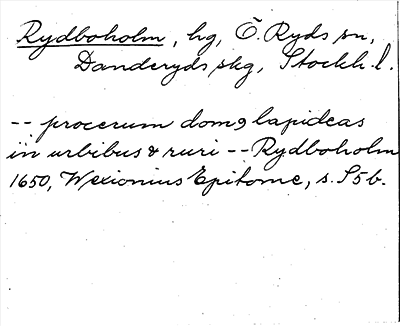 Rydboholm, hg, Ö. Ryds sn,
Danderyds skg, Stockh. l.
-- procerum domꝯ lapideas
in urbibus & ruri -- Rydboholm
1650, Wexionius Epitome, s. S5b.